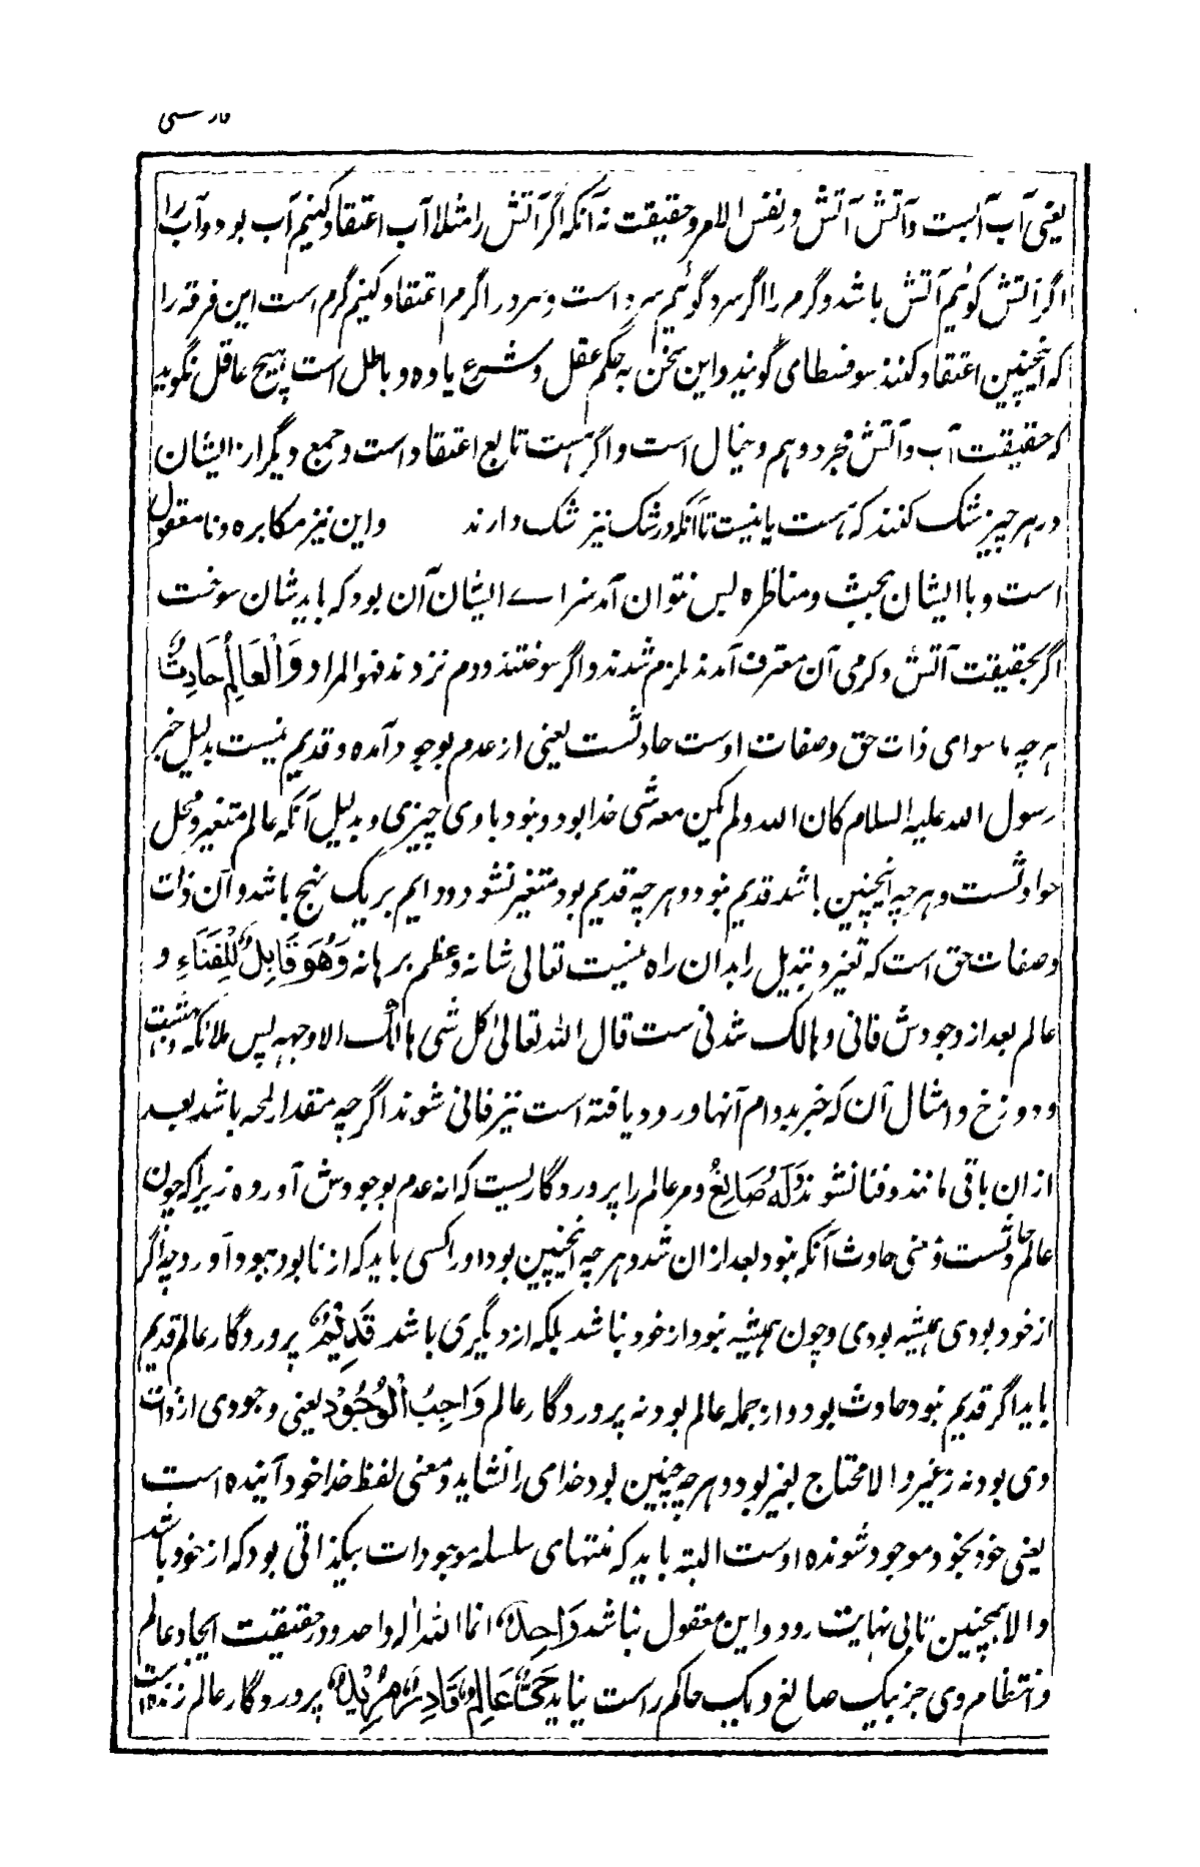 فارسی
یعنی آب آبست و آتش آتش در نفس الامر و حقیقت نه آنکه اگر آتش را مثلا آب اعتقاد کنیم آب بود و آب را
اگر آتش گوئیم آتش باشد و گرم را اگر سرد گوئیم سرد است و سرد را گرم اعتقاد کنیم گرم است این فرقه را
که اینچنین اعتقاد کنند سوفسطای گویند و این سخن به حکم عقل و شرع یاوه و باطل است هیچ عاقل نگوید
که حقیقت آب و آتش مجرد وهم و خیال است و اگر هست تابع اعتقاد است و جمع دیگر از ایشان
در هر چیز شک کنند که هست یا نیست تا آنکه در شک نیز شک دارند و این نیز مکابره و نامعقول
است و با ایشان بحث و مناظره پس نتوان آمد سزاے ایشان آن بود که بایدشان سوخت
اگر بحقیقت آتش و گرمی آن معترف آمدند ملزم شدند و اگر سوختند و دم نزدند فهو المراد وَالْعَالَمُ حَادِثٌ
هرچه ماسوای ذات حق و صفات اوست حادثست یعنی از عدم بوجود آمده و قدیم نیست بدلیل خبر
رسول الله علیه السلام کان الله ولم یکن معه شی خدا بود و نبود با وی چیزی و بدلیل آنکه عالم متغیر و محل
حوادثست و هرچه اینچنین باشد قدیم نبود و هرچه قدیم بود متغیر نشود و دایم بر یک نهج باشد و آن ذات
و صفات حق است که تغیر و تبدیل را بدان راه نیست تعالی شانه و عظم برهانه وَهُوَ قَابِلٌ لِلْفَنَاءِ و
عالم بعد از وجودش فانی و هالک شدنی ست قال الله تعالیٰ کل شی هالک الا وجهه پس ملائکه و بهشت
و دوزخ و امثال آن که خبر بدوام آنها ورود یافته است نیز فانی شوند اگرچه مقدار لمحه باشد بعد
از ان باقی مانند و فنا نشوند وَلَهُ صَانِعٌ و مر عالم را پروردگاریست که از عدم بوجودش آورده زیرا که چون
عالم حادثست و معنی حادث آنکه نبود بعد از ان شد و هرچه اینچنین بود او را کسی باید که از نابود ببود آورد چه اگر
از خود بودی همیشه بودی و چون همیشه نبود از خود نباشد بلکه از دیگری باشد قَدِیْمٌ پروردگار عالم قدیم
باید اگر قدیم نبود حادث بود و از جمله عالم بود نه پروردگار عالم وَاجِبُ الْوُجُوْدِ یعنی وجودی از ذات
وی بود نه ز غیر و الا محتاج بغیر بود و هرچه چنین بود خدای را نشاید و معنی لفظ خدا خود آینده است
یعنی خود بخود موجود شونده اوست البته باید که منتهای سلسله موجودات بیکذاتی بود که از خود باشد
والا همچنین تا بی نهایت رود و این معقول نباشد وَاحِدٌ انما الله اله واحد و در حقیقت ایجاد عالم
و انتظام وی جز بیک صانع و یک حاکم راست نیاید حَیٌّ عَالِمٌ قَادِرٌ مُرِیْدٌ پروردگار عالم زنده است